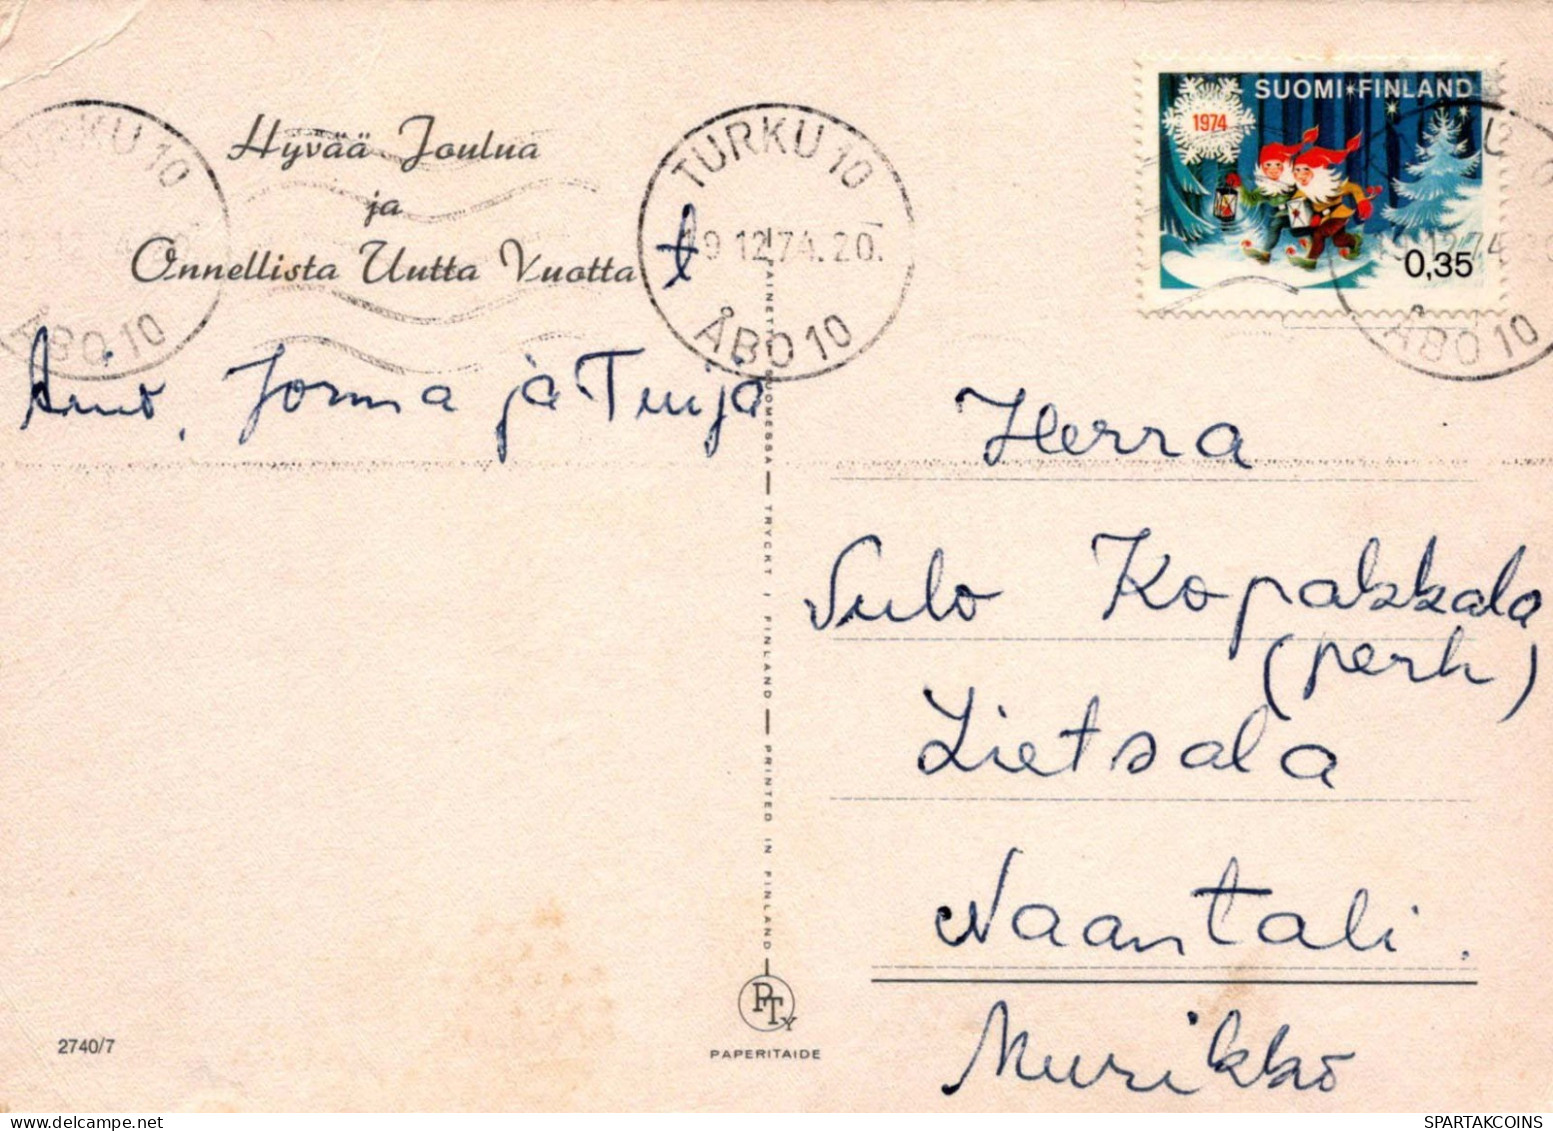 Hyvää Joulua
ja
Onnellista Uutta Vuotta
t
Aino, Jorma ja Tuija
TURKU 10
19.12.74.20.
ÅBO 10
TURKU 10
ÅBO 10
SUOMI FINLAND
1974
0,35
19.12.74.20
ÅBO 10
PAINETTU SUOMESSA — TRYCKT I FINLAND — PRINTED IN FINLAND
Herra
Sulo Kopakkala
(perh)
Lietsala
Naantali.
Murikko
PTY
PAPERITAIDE
2740/7
SPARTAKCOINS